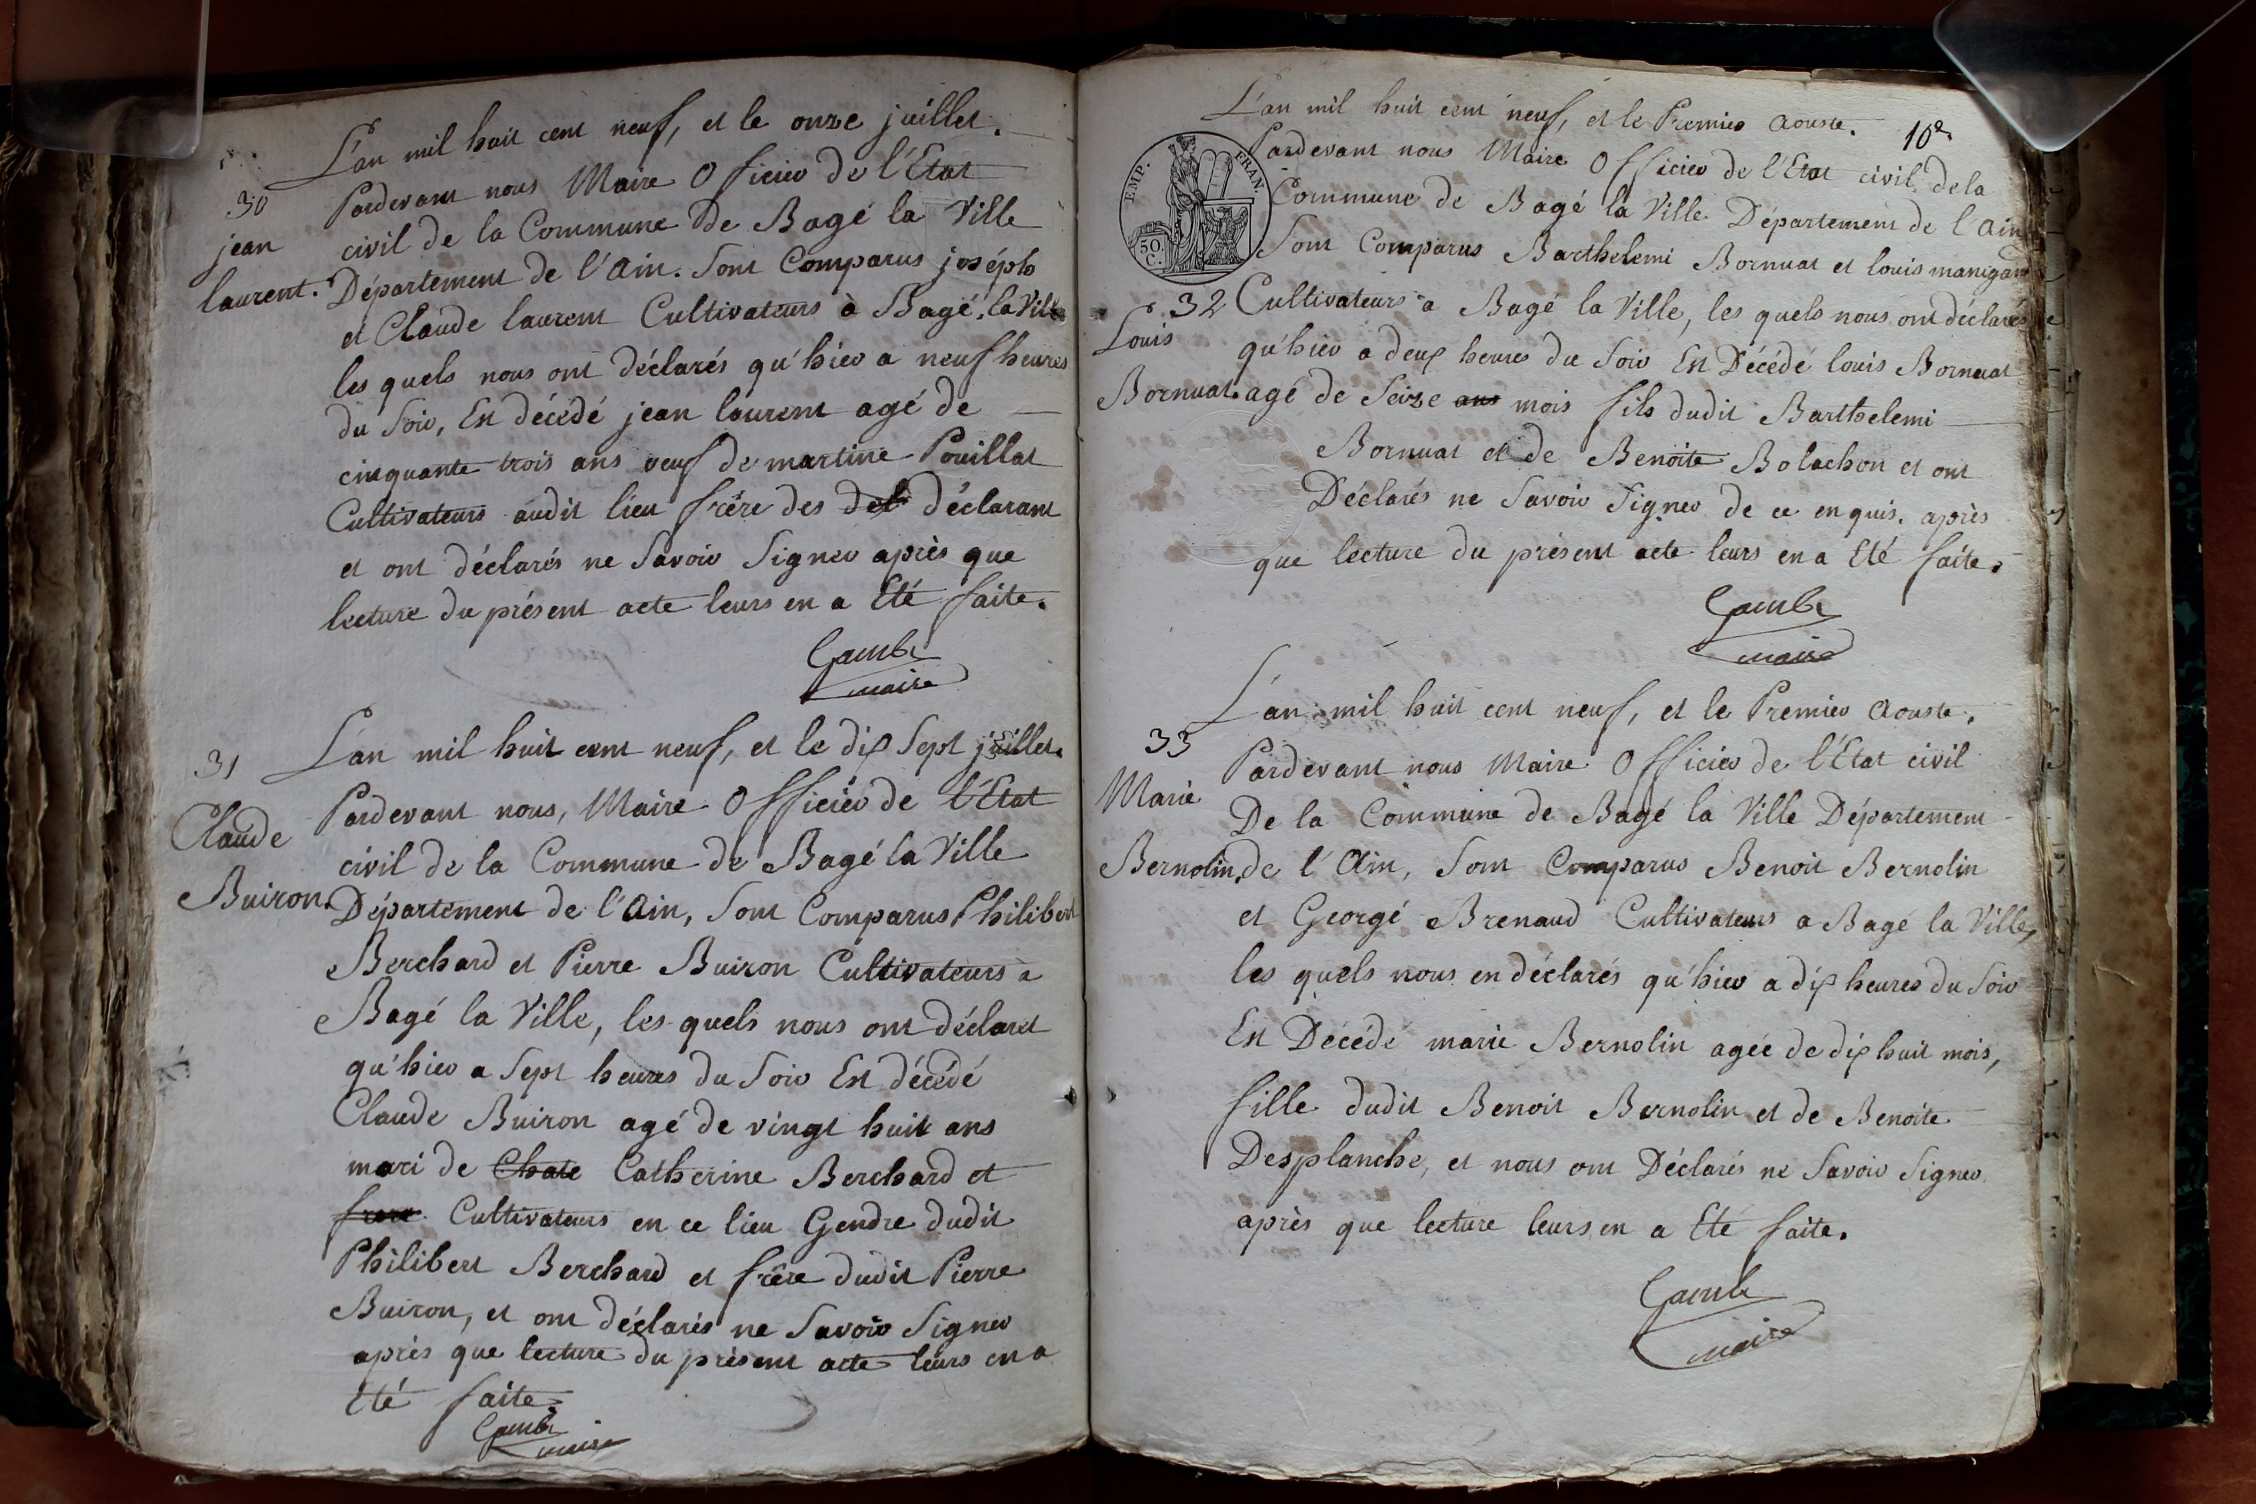 L'an mil huit cent neuf, et le onze juillet.
30
Pardevant nous Maire Officier de l'Etat
jean
civil de la Commune de Bagé la Ville
laurent.
Département de l'Ain. Sont Comparus joséph
et Claude laurent Cultivateurs à Bagé la Ville
les quels nous ont déclarés qu'hier a neuf heures
du Soir, Est décédé jean laurent agé de
cinquante trois ans veuf de martine Pouillat
Cultivateurs audit lieu frère des del déclarant
et ont déclarés ne Savoir Signer après que
lecture du présent acte leurs en a Eté faite.
maire
31
L'an mil huit cent neuf, et le dix Sept juillet.
Claude
Buiron.
Pardevant nous, Maire Officier de l'Etat
civil de la Commune de Bagé la Ville
Département de l'Ain, Sont Comparus Philibert
Berchard et Pierre Buiron Cultivateurs a
Bagé la Ville, les quels nous ont déclaret
qu'hier a Sept heures du Soir Est décédé
Claude Buiron agé de vingt huit ans
mari de Chate Catherine Berchard et
frere Cultivateurs en ce lieu Gendre dudit
Philibert Berchard et frère dudit Pierre
Buiron, et ont déclarés ne Savoir Signer
après que lecture du présent acte leurs en a
Eté faite.
maire
L'an mil huit cent neuf, et le Premier Aouste.
10e.
TEMP. FRAN.
50.
C.
Pardevant nous Maire Officier de l'Etat civil de la
Commune de Bagé la Ville Département de l'Ain
Sont Comparus Barthelemi Bornuat et louis manigand
32
Louis
Bornuat.
Cultivateurs a Bagé la Ville, les quels nous ont déclarés
qu'hier a deux heures du Soir Est Décédé louis Bornuat
agé de Seize ans mois fils dudit Barthelemi
Bornuat et de Benoite Bolachon et ont
Déclarés ne Savoir Signer de ce enquis. après
que lecture du présent acte leurs en a Eté faite.
maire
L'an mil huit cent neuf, et le Premier Aouste.
33
Marie
Bernolin.
Pardevant nous Maire Officier de l'Etat civil
De la Commune de Bagé la Ville Département
de l'Ain, Sont Comparus Benoit Bernolin
et Georgé Brenaud Cultivateurs a Bagé la Ville,
les quels nous en déclarés qu'hier a dix heures du Soir
Est Décédé marie Bernolin agée de dix huit mois,
fille dudit Benoit Bernolin et de Benoite
Desplanche, et nous ont Déclarés ne Savoir Signer
après que lecture leurs en a Eté faite.
maire